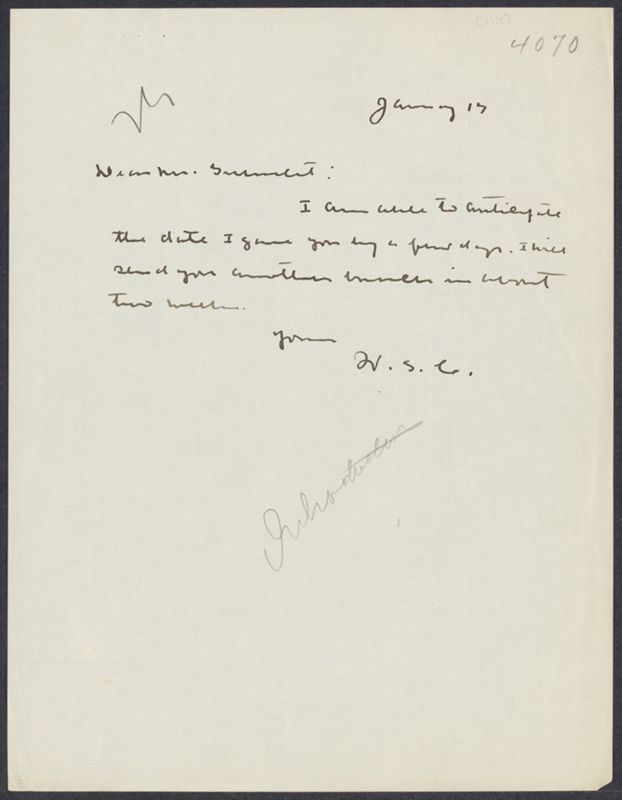 [1918]
4070
January 17
Dear Mr. :
I am able to anticipate
the date I gave you by a few days. I will
send you another bunch in about
two weeks.
Yours
W. S. C.
Introduction